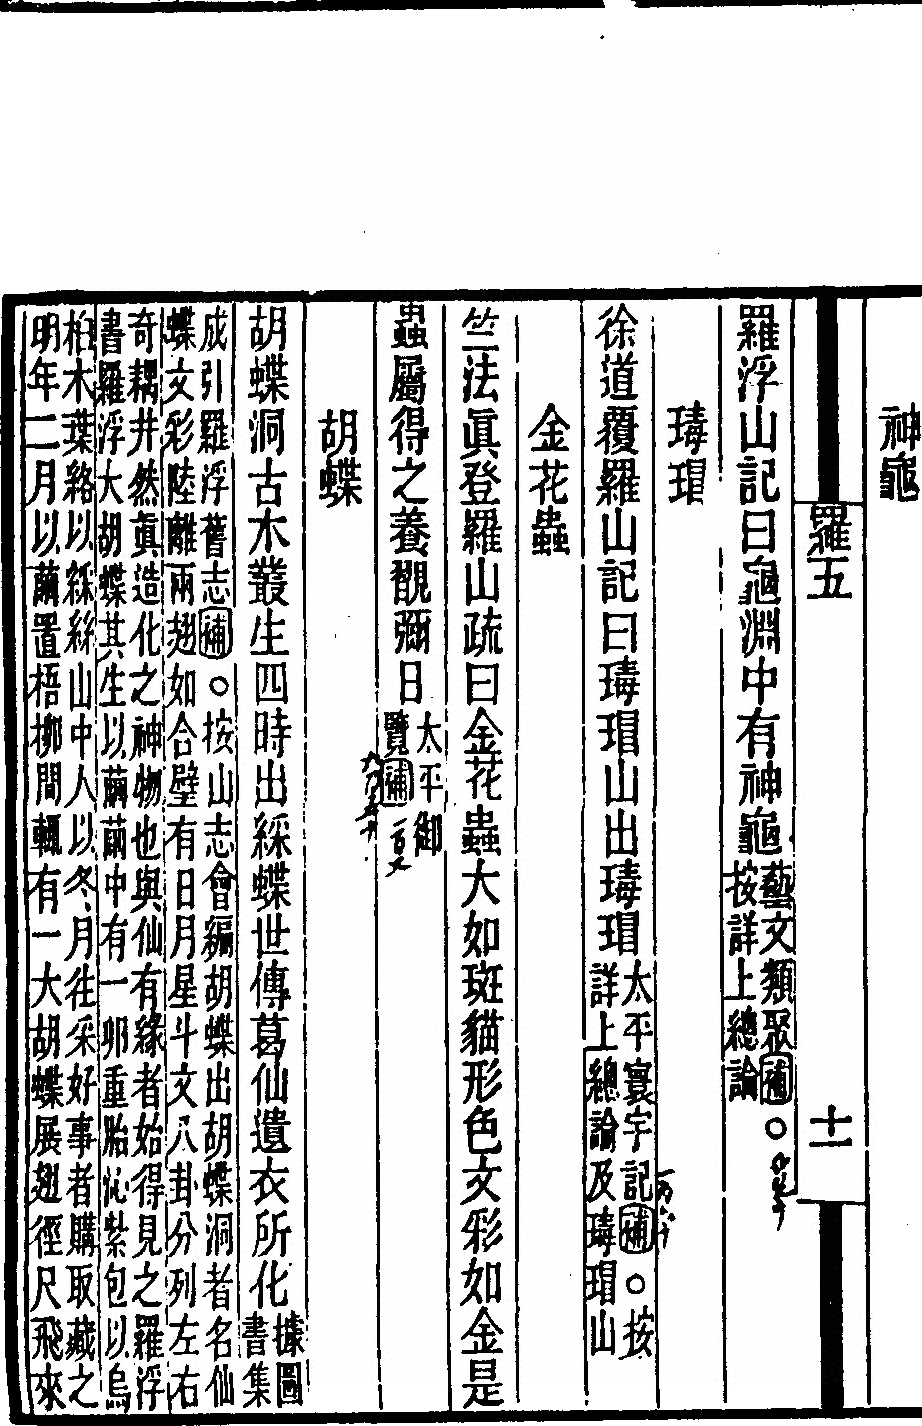 神龜
羅五
十一
羅浮山記曰龜淵中有神龜藝文類聚補○
按詳上總論
瑇瑁
徐道覆羅山記曰瑇瑁山出瑇瑁太平寰宇記補○按
詳上總論及瑇瑁山
金花蟲
竺法眞登羅山疏曰金花蟲大如斑貓形色文彩如金是
蟲屬得之養翫彌日太平御
覽補
胡蝶
胡蝶洞古木叢生四時出綵蝶世傳葛仙遺衣所化據圖
書集
成引羅浮舊志補○按山志會編胡蝶出胡蝶洞者名仙
蝶文彩陸離兩翅如合璧有日月星斗文八卦分列左右
奇耦井然眞造化之神物也與仙有緣者始得見之羅浮
書羅浮大胡蝶其生以繭繭中有一卵重胎沁紫包以烏
桕木葉絡以綵絲山中人以冬月往采好事者購取藏之
明年二月以繭置梧柳間輒有一大胡蝶展翅徑尺飛來